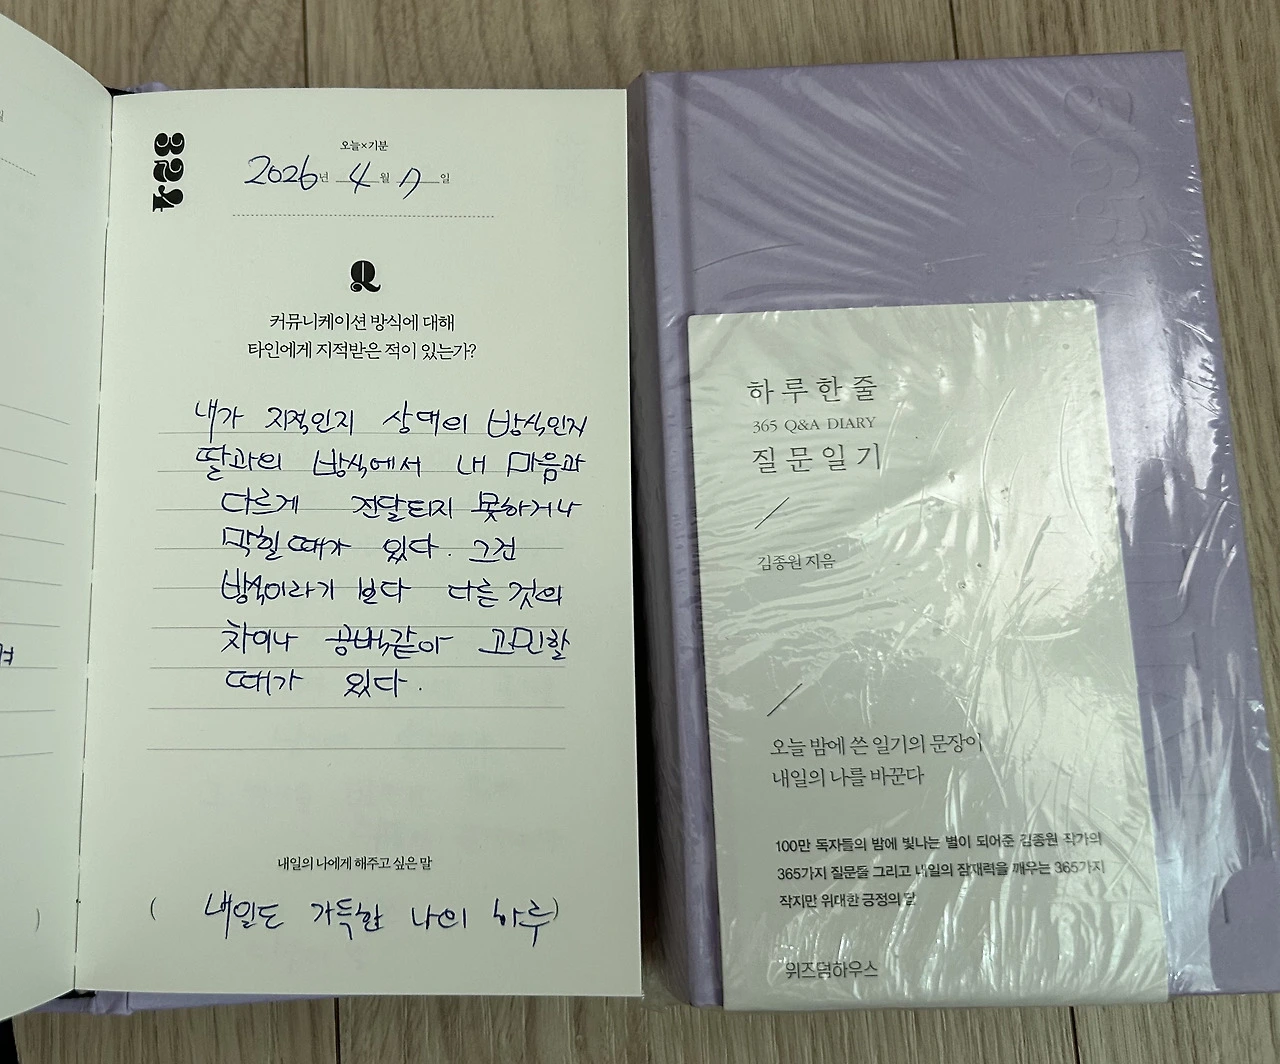 324
오늘×기분
2026년 4월 7일
Q
커뮤니케이션 방식에 대해
타인에게 지적받은 적이 있는가?
내가 지적인지 상대의 방식인지
딸과의 방식에서 내 마음과
다르게 전달되지 못하거나
막힐때가 있다. 그건
방식이라기 보다 다른 것의
차이나 공백같아 고민할
때가 있다.
내일의 나에게 해주고 싶은 말
( 내일도 가득한 나의 하루 )
하루한줄
365 Q&A DIARY
질문일기
김종원 지음
오늘 밤에 쓴 일기의 문장이
내일의 나를 바꾼다
100만 독자들의 밤에 빛나는 별이 되어준 김종원 작가의
365가지 질문들 그리고 내일의 잠재력을 깨우는 365가지
작지만 위대한 긍정의 말
위즈덤하우스